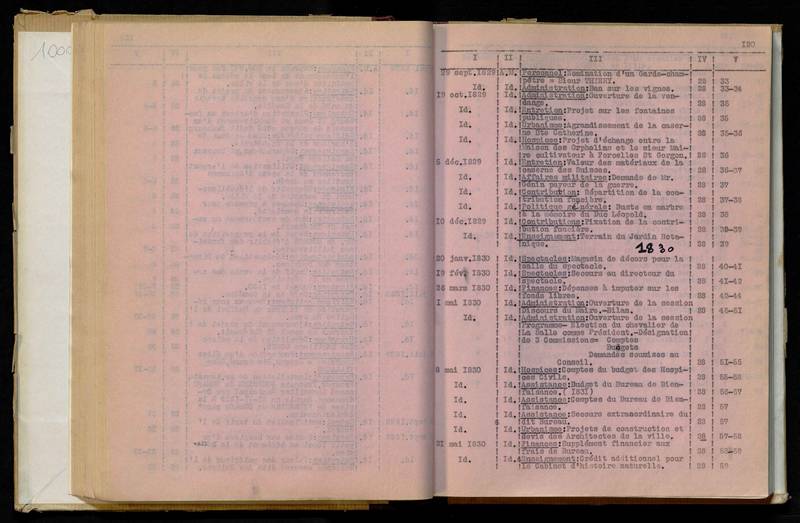 1000
I20
I II III IV V
29 sept.I829 A.M. Personnel:Nomination d'un Garde-cham-
pêtre = Sieur THIERY. 28 33
Id. Id. Administration:Ban sur les vignes. 28 33-34
I9 oct.I829 Id. Administration:Ouverture de la ven-
dange. 28 35
Id. Id. Entretien:Projet sur les fontaines
publiques. 28 35
Id. Id. Urbanisme:Agrandissement de la caser-
ne Ste Catherine. 28 35-36
Id. Id. Hospices:Projet d'échange entre la
Maison des Orphelins et le sieur Mai-
re cultivateur à Forcelles St Gorgon. 28 36
5 déc.I829 Id. Entretien:Valeur des matériaux de la
caserne des Suisses. 28 36-37
Id. Id. Affaires militaires:Demande de Mr.
Génin payeur de la guerre. 28 37
Id. Id. Contribution: Répartition de la con-
tribution foncière. 28 37-38
Id. Id. Politique générale: Buste en marbre
à la mémoire du Duc Léopold. 28 38
I0 déc.I829 Id. Contributions:Fixation de la contri-
bution foncière. 28 38-39
Id. Id. Enseignement:Terrain du Jardin Bota-
nique. 28 39
1830
20 janv.I830 Id. Spectacles:Magasin de décors pour la
salle du spectacle. 28 40-4I
I9 fév. I830 Id. Spectacles:Secours au directeur du
spectacle. 28 4I-42
26 mars I830 Id. Finances:Dépenses à imputer sur les
fonds libres. 28 42-44
I mai I830 Id. Administration:Ouverture de la session
Discours du Maire.-Bilan. 28 45-5I
Id. Id. Administration:Ouverture de la session
Programme- Election du chevalier de
La Salle comme Président.-Désignation
de 3 Commissions= Comptes
Budgets
Demandes soumises au
Conseil. 28 5I-55
8 mai I830 Id. Hospices:Comptes du budget des Hospi-
ces Civils. 28 55-56
Id. Id. Assistance:Budget du Bureau de Bien-
faisance.( I83I) 28 56-57
Id. Id. Assistance:Comptes du Bureau de Bien-
faisance. 28 57
Id. Id. Assistance:Secours extraordinaire du
dit Bureau. 28 57
Id. Id. Urbanisme:Projets de construction et
devis des Architectes de la ville. 28 57-58
2I mai I830 Id. Finances:Supplément financier aux
frais de Bureau. 28 58-59
Id. Id. Enseignement:Crédit additionnel pour
le Cabinet d'histoire naturelle. 28 59